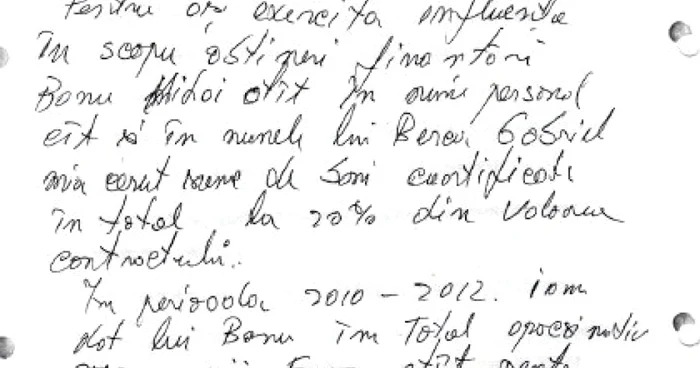 Pentru a exercita influenta
În scopu obtineri finantari
Banu Mihai atît în nume personal
cît și în numele lui Berca Gabriel
mia cerut sume de bani cuantificati
în total la 20% din valoarea
contractului.
În perioada 2010 - 2012. iam
dat lui Banu în Total aproximativ